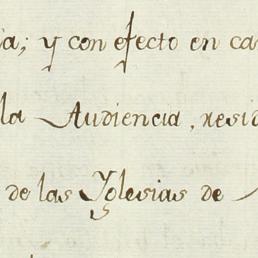 ia; y con efecto en ca
la Audiencia, resid
de las Yglesias de